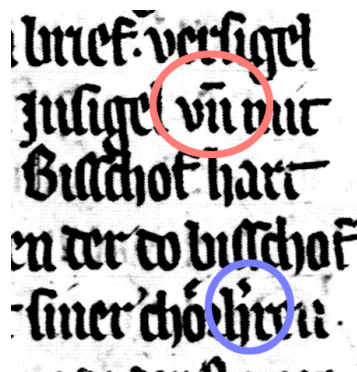 brief. versigel
Jnsigel vn̄ mit
Bisschof hart
en der do bisschof
siner